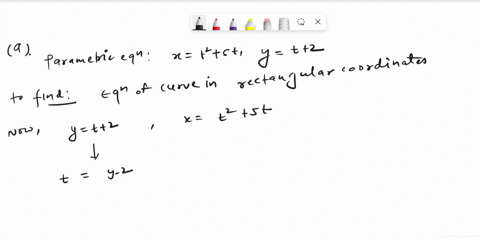 (a). Parametric eqn: x = t² + 5t, y = t+2
to find: Eqn of curve in rectangular coordinates
Now, y = t+2 , x = t² + 5t
↓
t = y-2